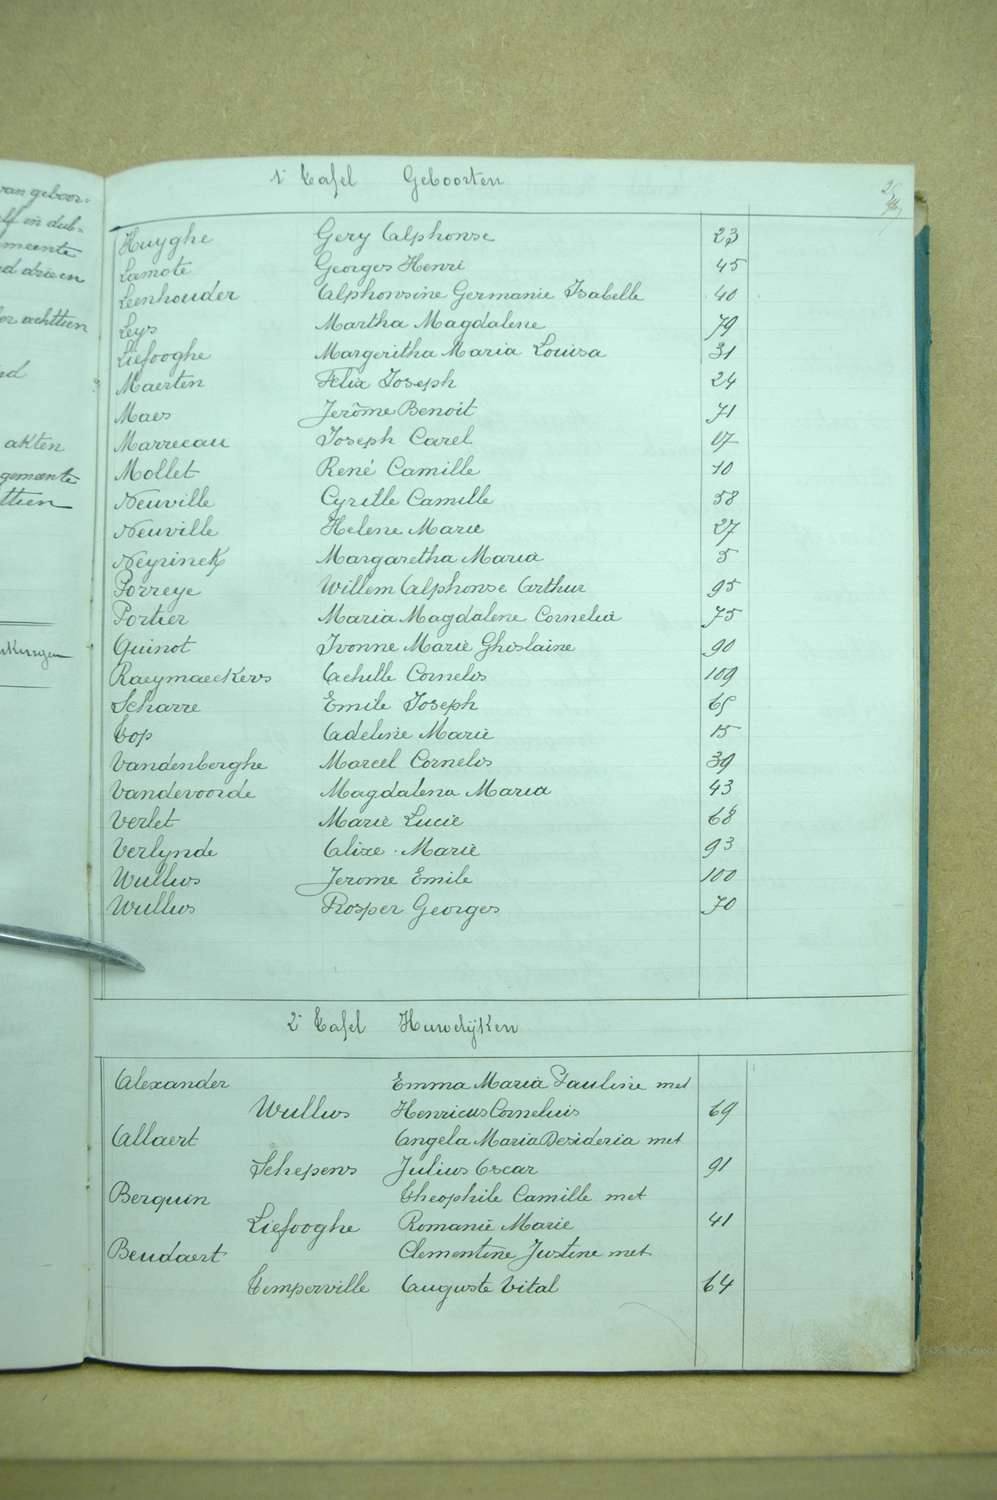 van geboor-
meente
achttien
akten
gemeente
ttien
1e Tafel Geboorten
Huyghe Gery Alphonse 23
Lamote Georges Henri 45
Leenhouder Alphonsine Germanie Isabelle 40
Leys Martha Magdalene 79
Liefooghe Margeritha Maria Louisa 31
Maerten Felix Joseph 24
Maes Jerôme Benoit 71
Marrecau Joseph Carel 17
Mollet René Camille 10
Neuville Cyrille Camille 58
Neuville Helene Marie 27
Neyrinck Margaretha Maria 5
Porreye Willem Alphonse Arthur 95
Portier Maria Magdalene Cornelia 75
Quinot Ivonne Marie Ghislaine 90
Raeymaeckers Achille Cornelis 109
Scharre Emile Joseph 65
Top Adeline Marie 15
Vandenberghe Marcel Cornelis 39
Vandevoorde Magdalena Maria 43
Verlet Marie Lucie 68
Verlynde Alixe Marie 93
Wullus Jerome Emile 100
Wullus Prosper Georges 70
2e Tafel Huwelijken
Alexander Emma Maria Pauline met
Wullus Henricus Cornelius 69
Allaert Angela Maria Desideria met
Schepens Julius Oscar 91
Berquin Theophile Camille met
Liefooghe Romanie Marie 41
Beudaert Clementine Justine met
Temperville Auguste Vital 64